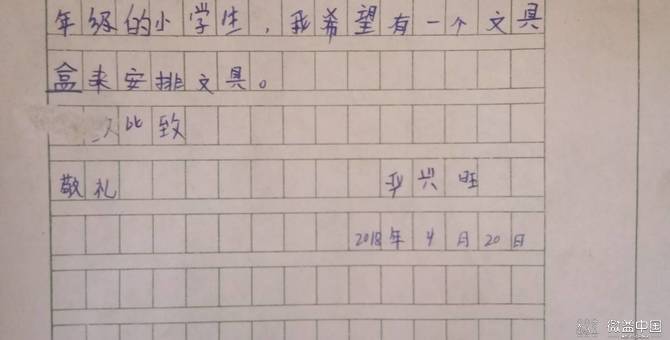 年级的小学生，我希望有一个文具
盒来安排文具。
比致
敬礼
兴旺
2018年 4月20日
微益中国